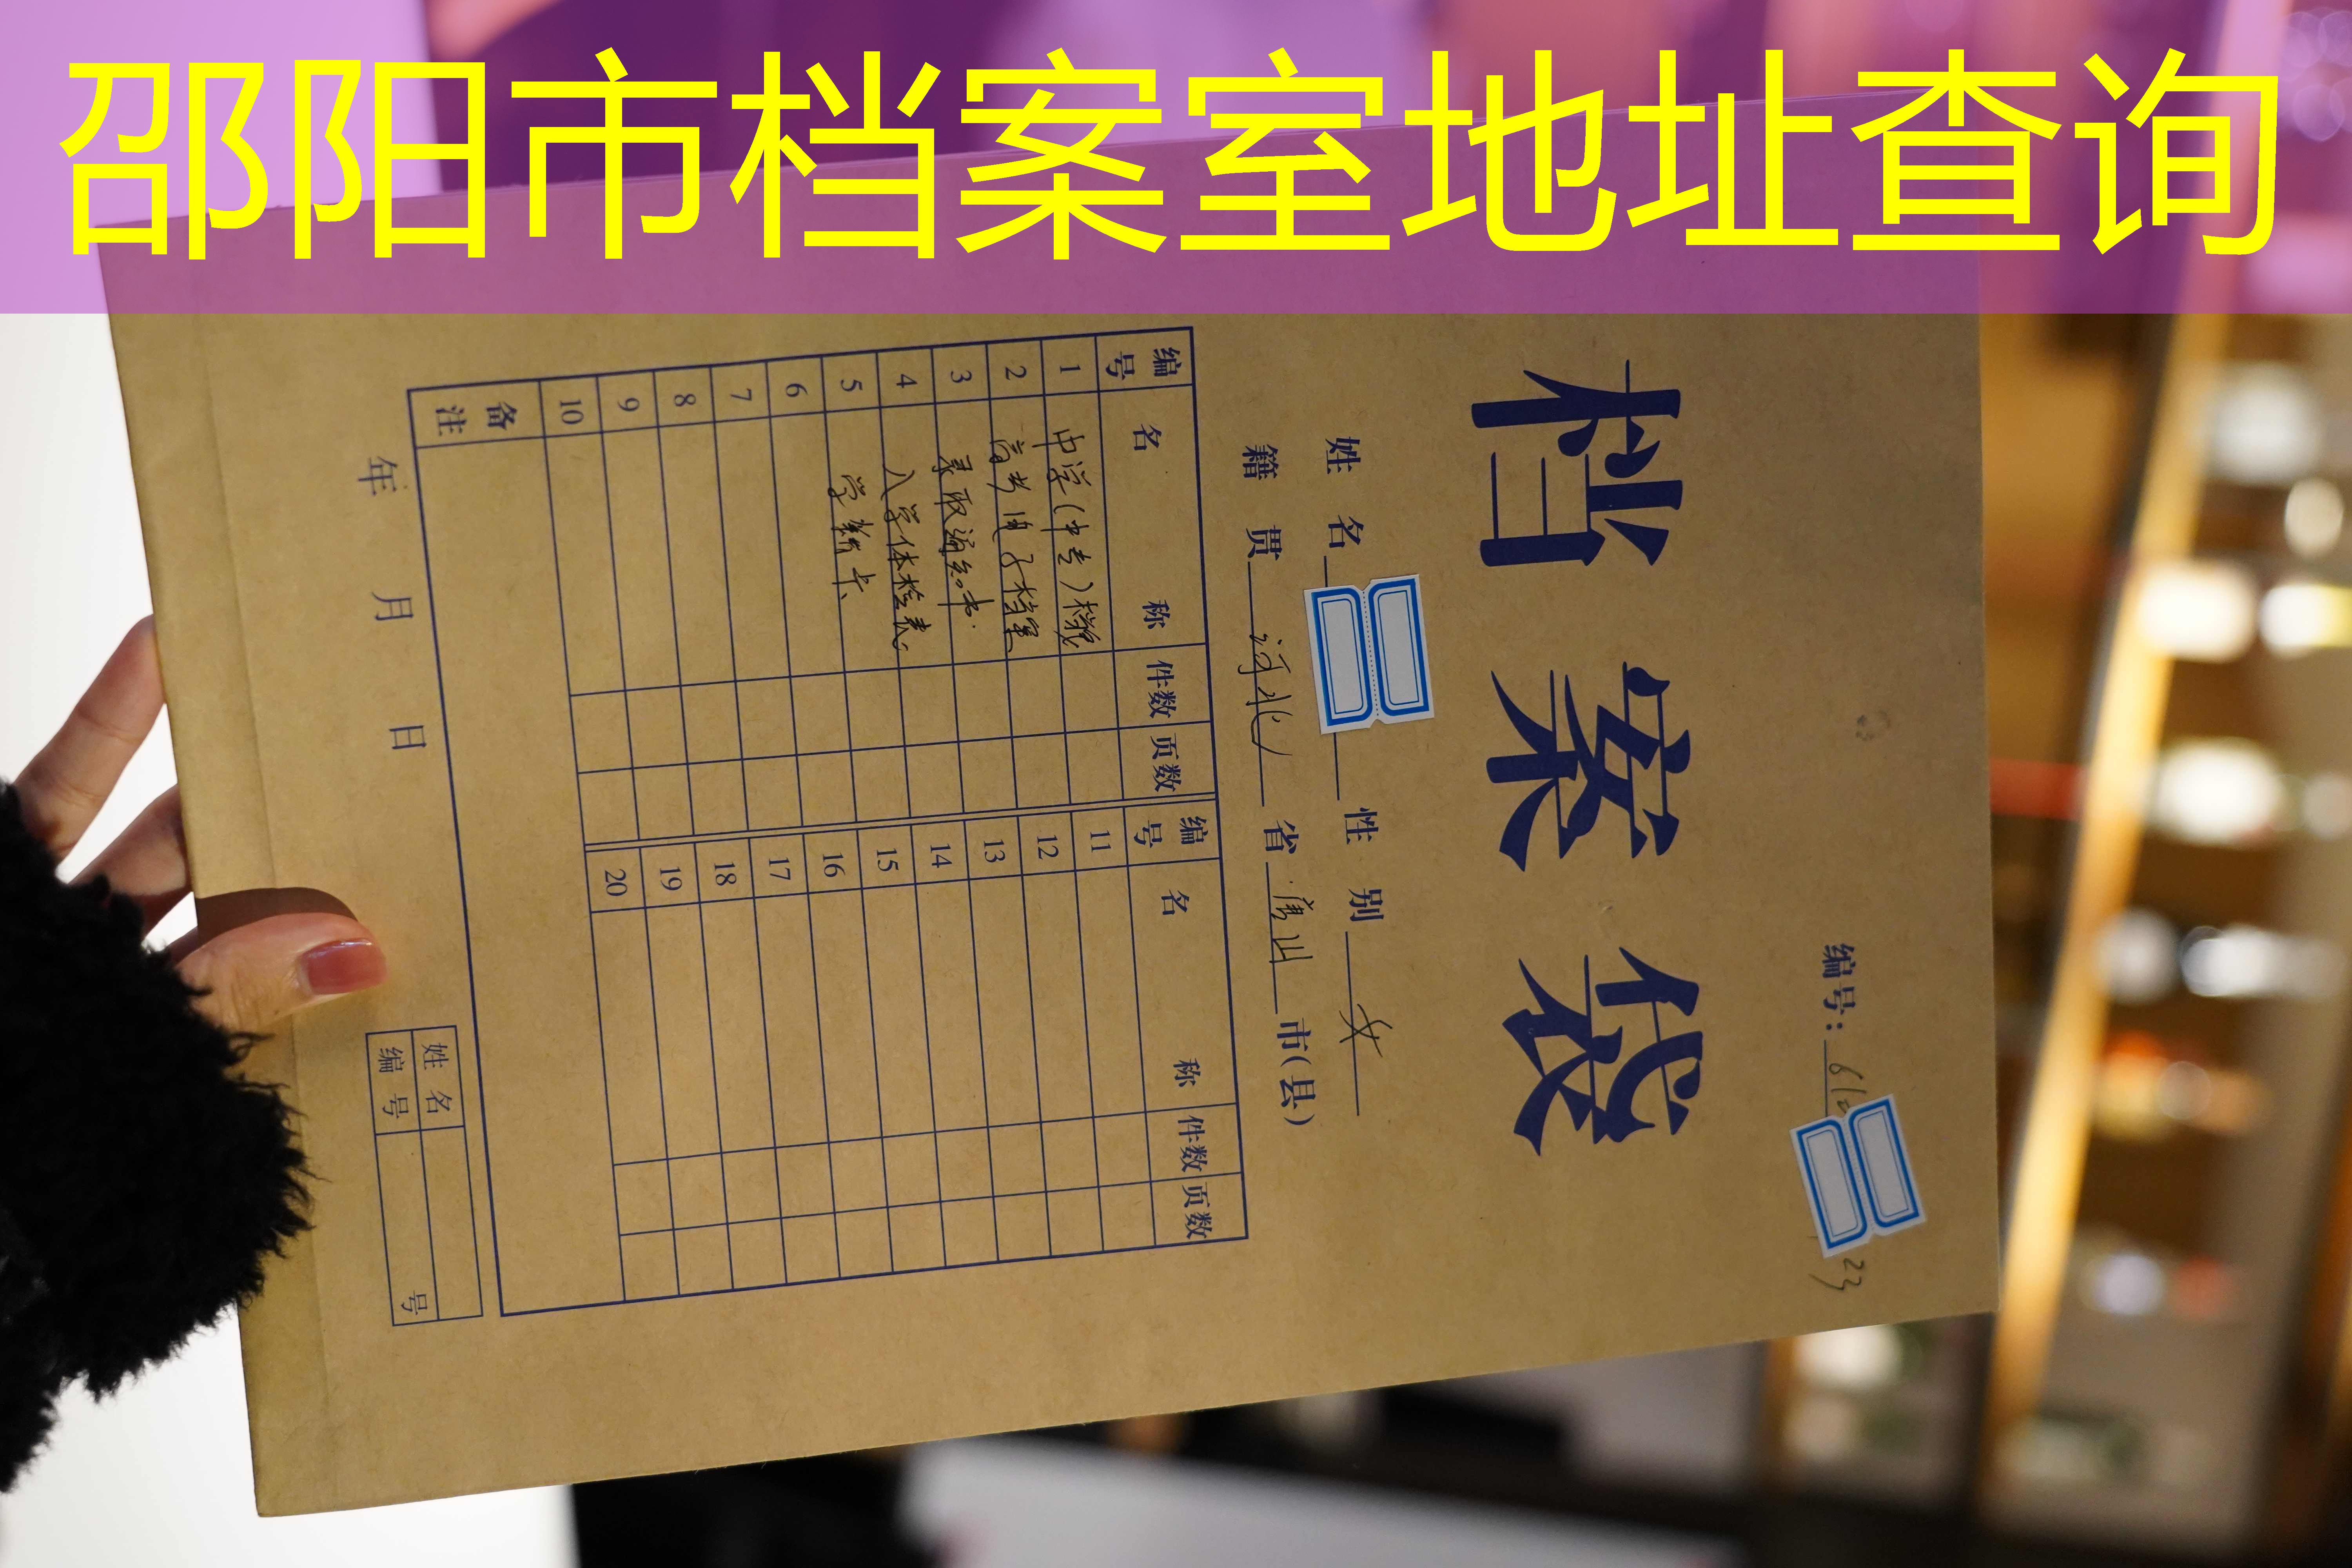 邵阳市档案室地址查询
编号：
23
档案袋
姓名 性别 女
籍贯 河北 省 唐山 市(县)
编号 名称 件数 页数 编号 名称 件数 页数
1 中学(中专)档案 11
2 高考电子档案 12
3 录取通知书 13
4 入学体检表 14
5 学籍卡 15
6 16
7 17
8 18
9 19
10 20
备注
年 月 日
姓名
编号 号